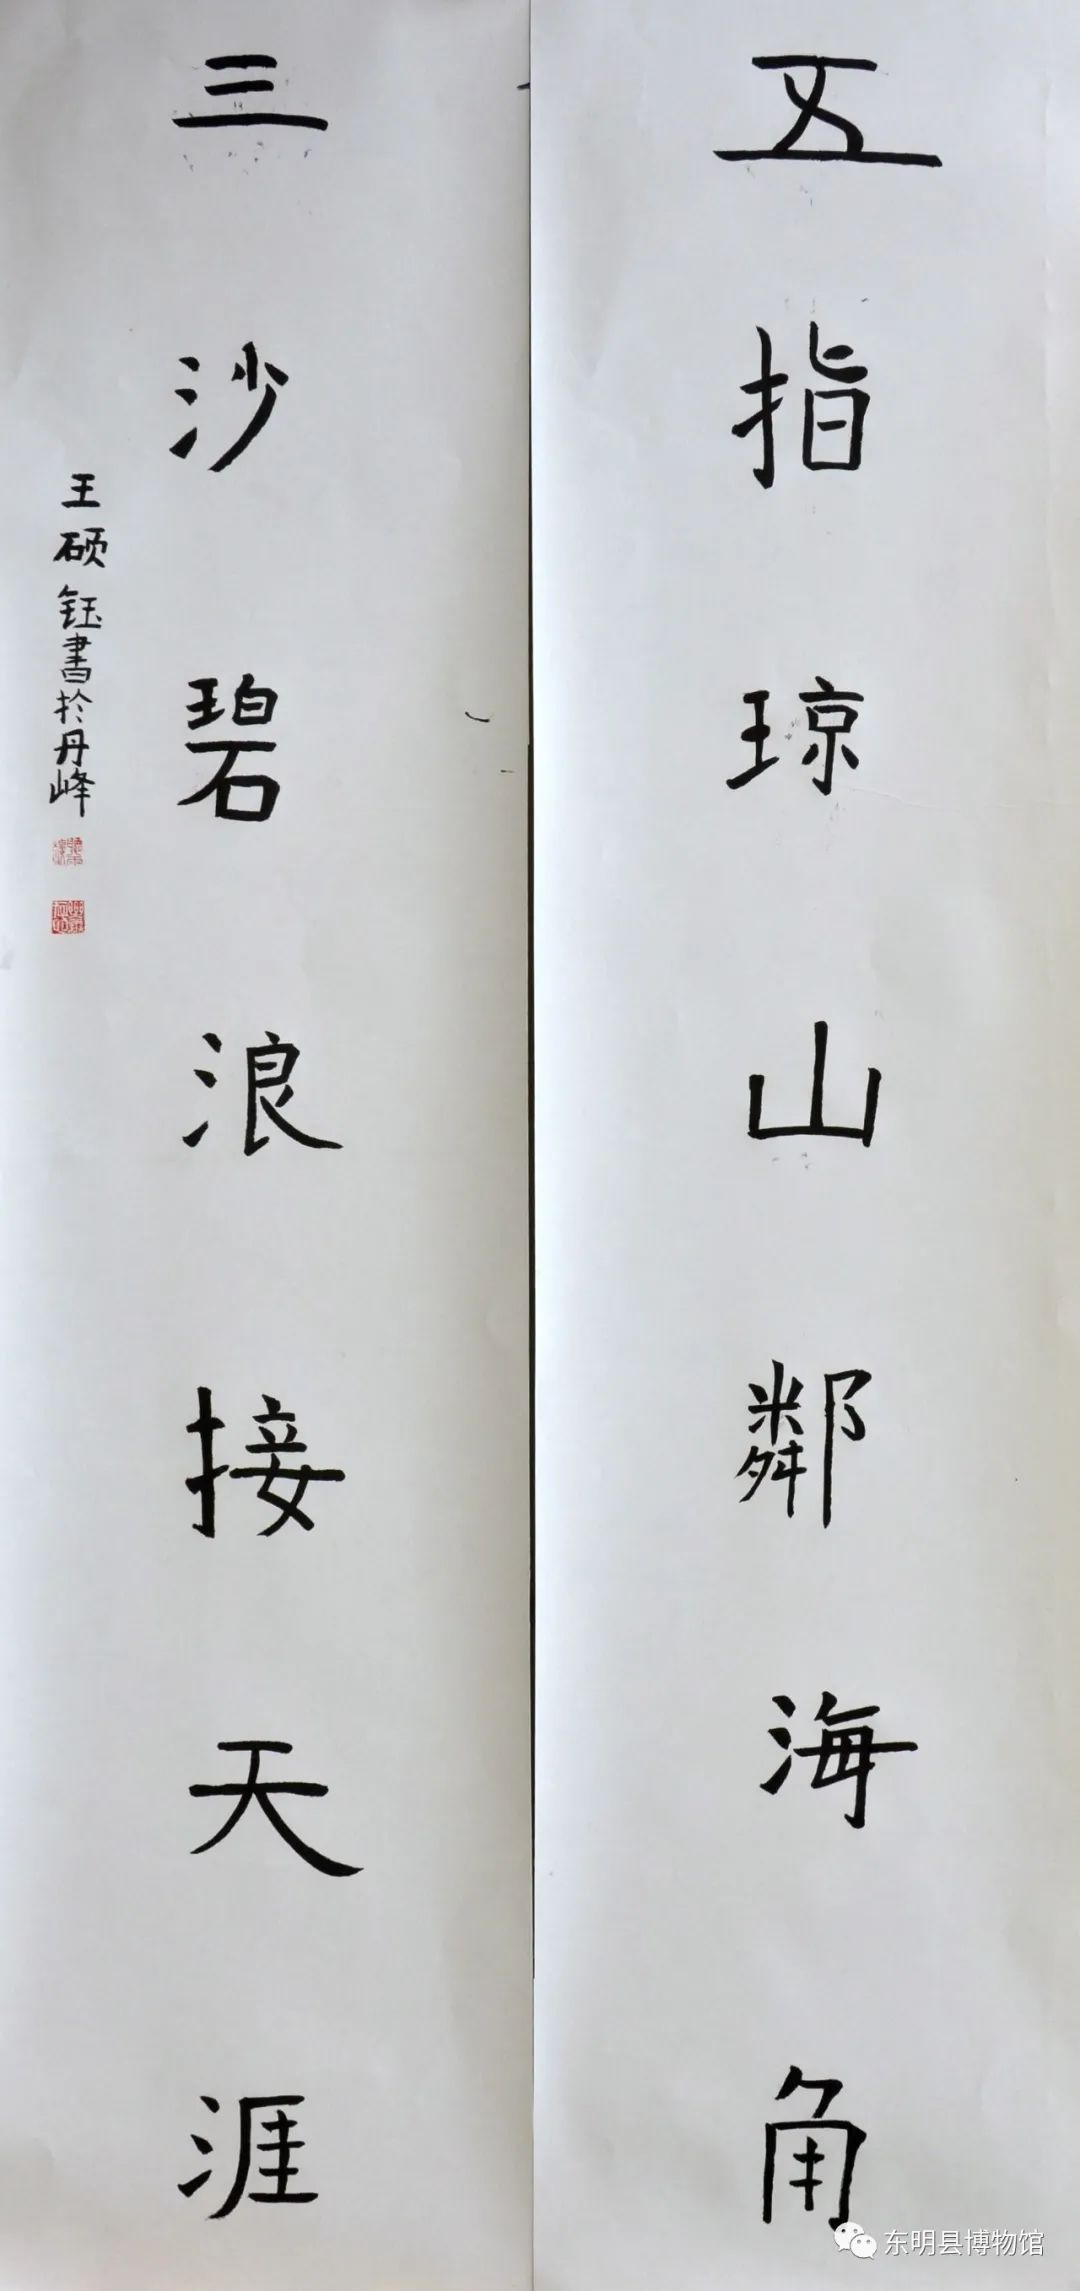 五指琼山鄰海角
三沙碧浪接天涯
王硕钰書於丹峰
东明县博物馆